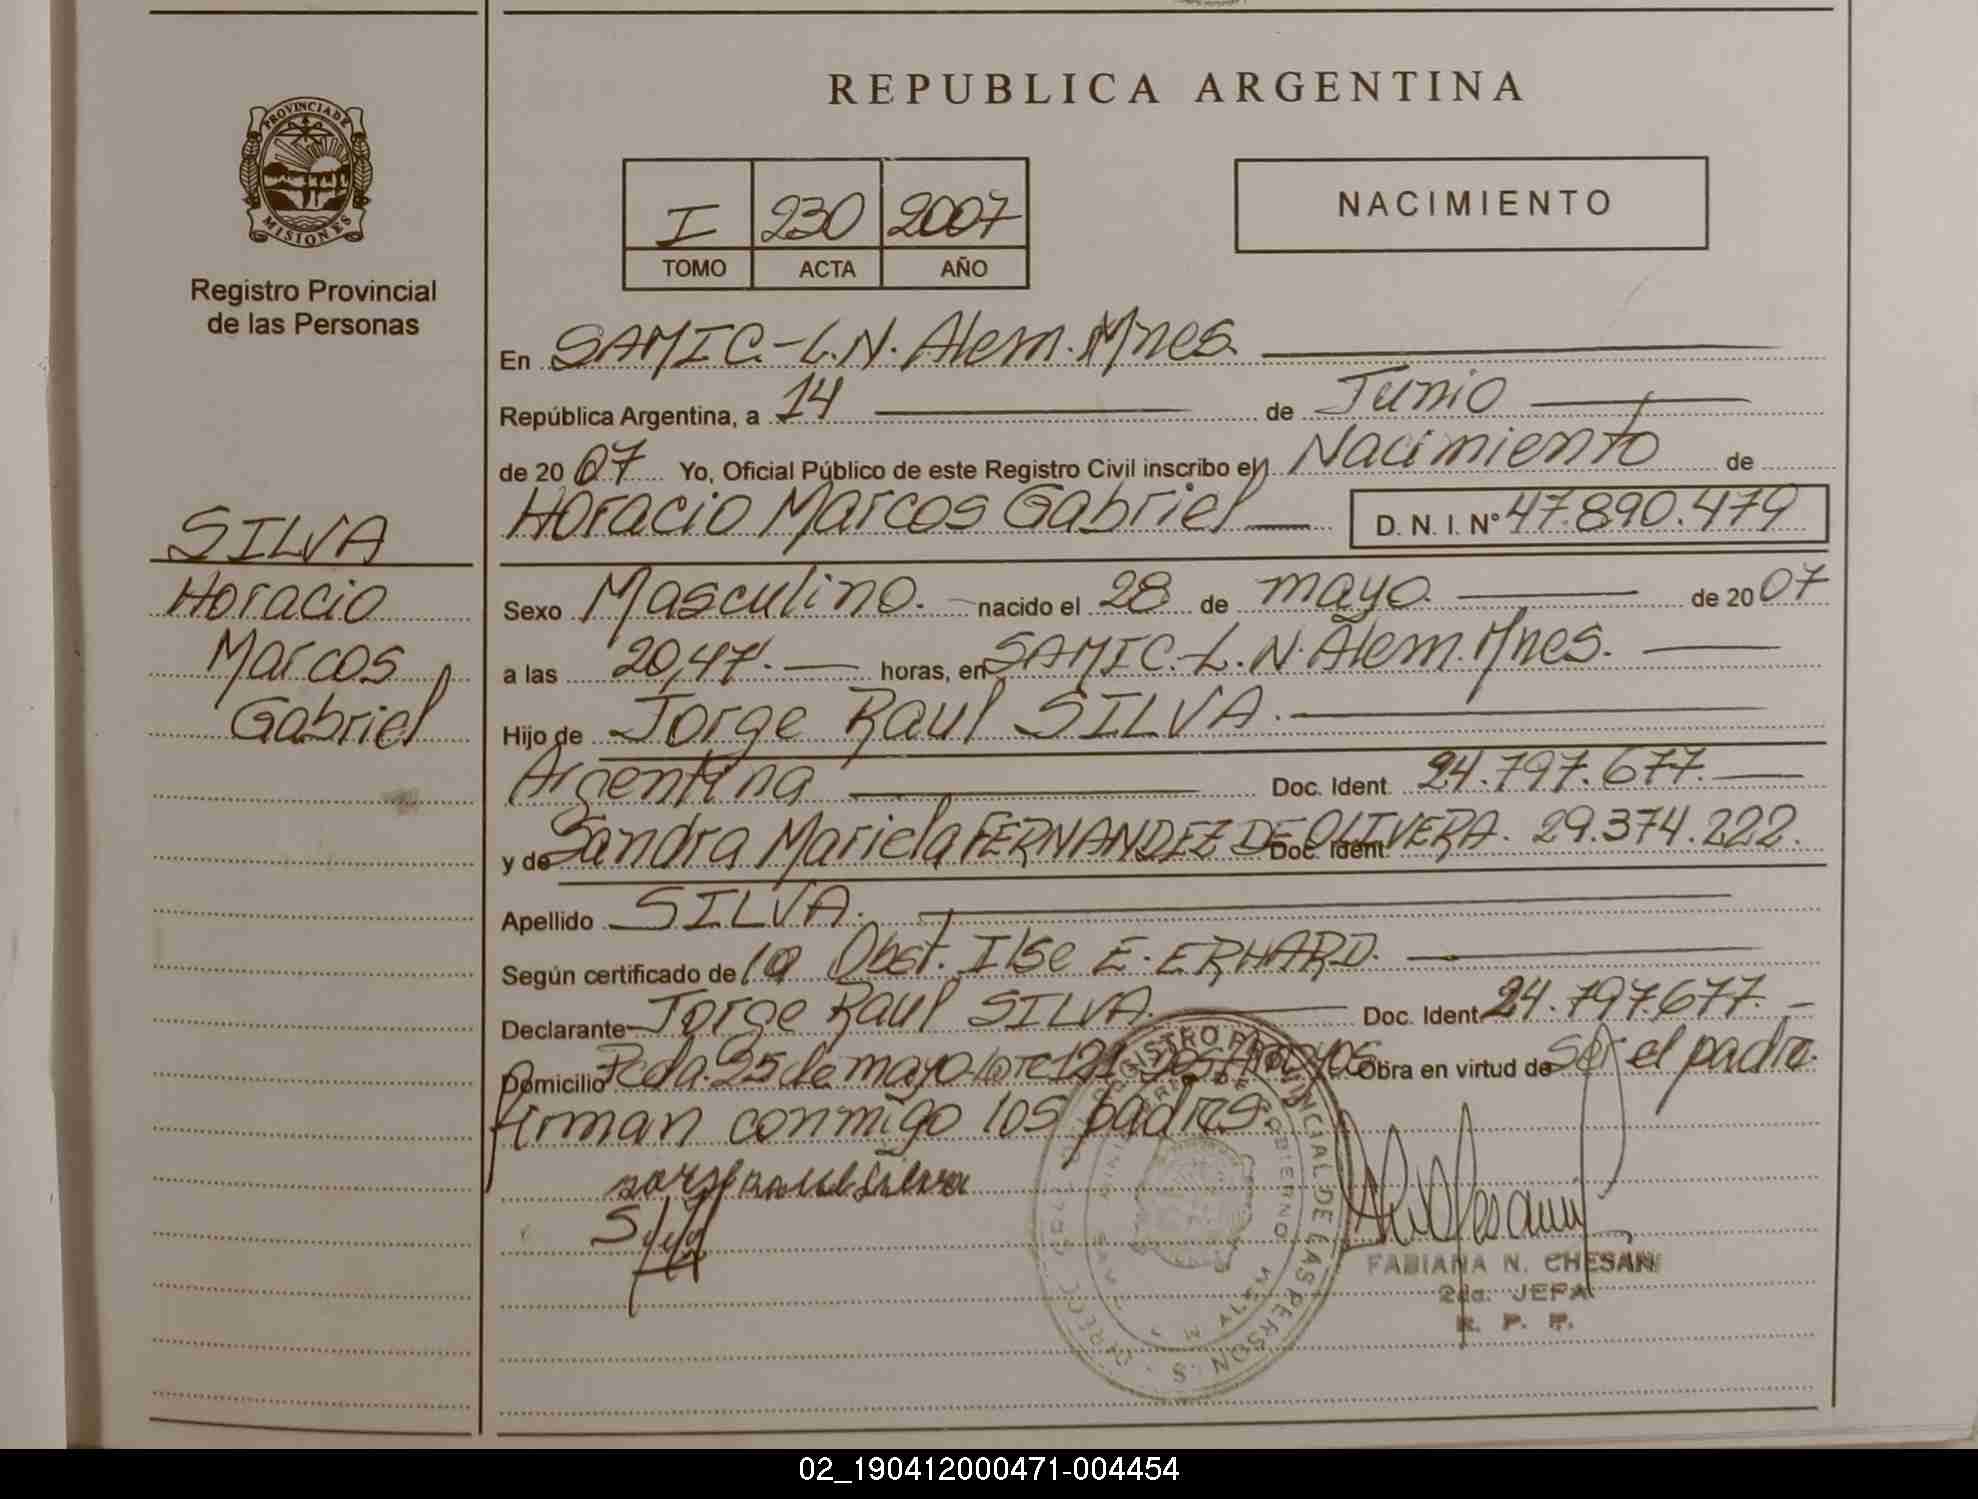 REPUBLICA ARGENTINA
PROVINCIA DE
MISIONES
Registro Provincial
de las Personas
I 230 2007
TOMO ACTA AÑO
NACIMIENTO
En SAMIC.-L.N. Alem. Mnes.
República Argentina, a 14 de Junio
de 2007 Yo, Oficial Público de este Registro Civil inscribo el Nacimiento de
Horacio Marcos Gabriel D. N. I. N° 47.890.479
SILVA
Horacio
Marcos
Gabriel
Sexo Masculino. nacido el 28 de mayo. de 2007
a las 20,47. horas, en SAMIC.-L.N. Alem. Mnes.
Hijo de Jorge Raul SILVA.
Argentina Doc. Ident. 24.797.677.
y de Sandra Mariela FERNANDEZ DE OLIVERA. Doc. Ident. 29.374.222.
Apellido SILVA.
Según certificado de la Obst. Ilse E. ERHARD.
Declarante Jorge Raul SILVA. Doc. Ident. 24.797.677.
Domicilio Pcda. 25 de mayo Lote 121 Dos Arroyos Obra en virtud de ser el padre.
Firman conmigo los padres.
FABIANA N. CHESANI
2da. JEFA
R. P. P.
02_190412000471-004454